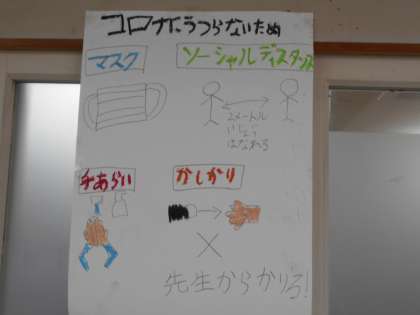 コロナにうつらないため
マスク
ソーシャルディスタンス
2メートル
いじょう
はなれろ
手あらい
かしかり
先生からかりろ!